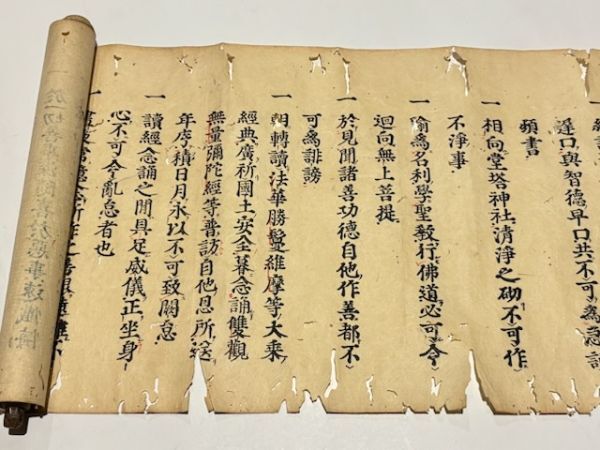 口與智德早口共不可為
書
一 相向堂塔神社清淨之砌不可作
不淨事
一 喻為名利學聖教行佛道必可令
迴向無上菩提
一 於見聞諸善功德自他作善都不
可為誹謗
一 朝轉讀法華勝鬘維摩等大乘
經典廣祈國土安全暮念誦雙觀
無量彌陀經等普訪自他恩所送
年序積日月永以不可致闕怠
一 讀經念誦之間具足威儀正坐身
心不可令亂怠者也
一
一 於